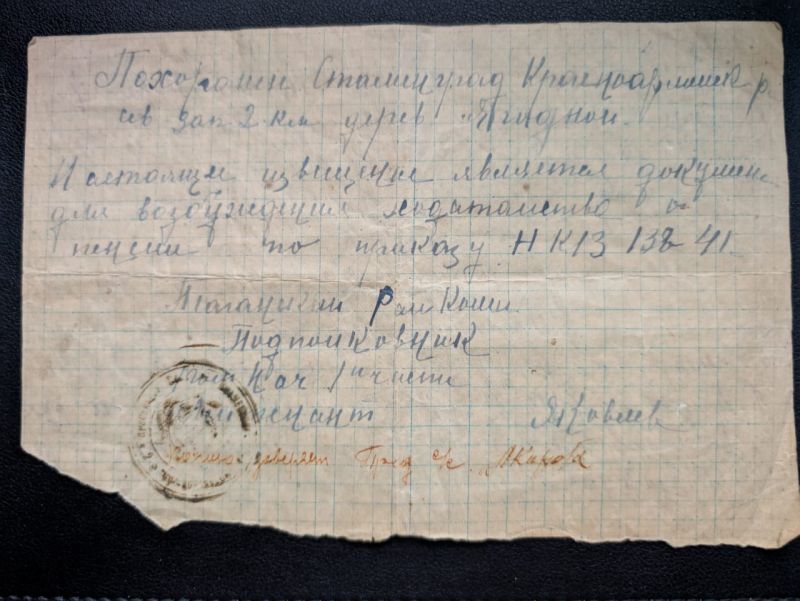 Похоронен Сталинград Красноармейск р
сев зап 2 км дерев Ягодной.
Настоящие извещение является докумен
для возбуждения ходатайство о
пенсии по приказу НКО 138 41
Таганский Райком
Подполковник
Нач 1й части
Лейтенант Яковлев
Копию заверяет Пред с/с